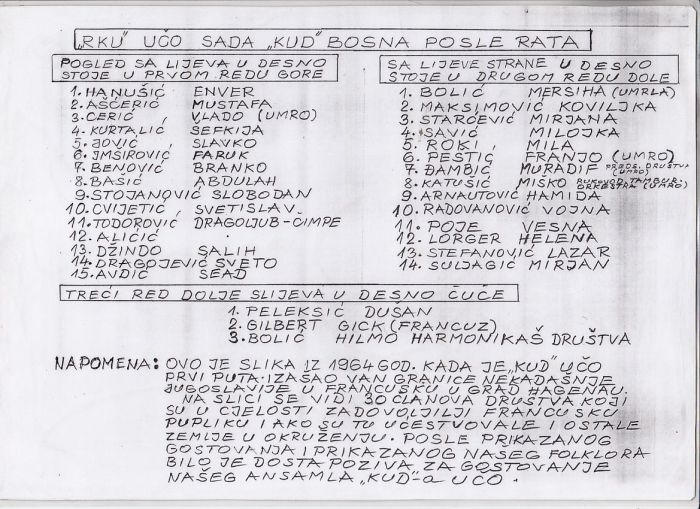 „RKU" UČO SADA „KUD" BOSNA POSLE RATA
POGLED SA LIJEVA U DESNO
STOJE U PRVOM REDU GORE
1. HANUŠIĆ ENVER
2. AŠĆERIĆ MUSTAFA
3. CERIĆ, VLADO (UMRO)
4. KURTALIĆ ŠEFKIJA
5. JOVIĆ, SLAVKO
6. IMŠIROVIĆ FARUK
7. BENOVIĆ BRANKO
8. BAŠIĆ ABDULAH
9. STOJANOVIĆ SLOBODAN
10. CVIJETIĆ, SVETISLAV
11. TODOROVIĆ DRAGOLJUB-CIMPE
12. ALIČIĆ
13. DŽINDO SALIH
14. DRAGOJEVIĆ SVETO
15. AVDIĆ SEAD
SA LIJEVE STRANE U DESNO
STOJE U DRUGOM REDU DOLE
1. BOLIĆ MERSIHA (UMRLA)
2. MAKSIMOVIĆ KOVILJKA
3. STARČEVIĆ MIRJANA
4. SAVIĆ MILOJKA
5. ROKI, MILA
6. PEŠTIĆ FRANJO (UMRO)
7. ĐAMBIĆ MURADIF PREDS. DRUŠTVA (UMRO)
8. KATUŠIĆ MIŠKO RUKOVOD. TAMBUR. ORKESTRA (UMRO)
9. ARNAUTOVIĆ HAMIDA
10. RADOVANOVIĆ VOJNA
11. POJE VESNA
12. LORGER HELENA
13. STEFANOVIĆ LAZAR
14. SULJAGIĆ MIRJAN
TREĆI RED DOLJE SLIJEVA U DESNO ČUČE
1. PELEKSIĆ DUŠAN
2. GILBERT GICK (FRANCUZ)
3. BOLIĆ HILMO HARMONIKAŠ DRUŠTVA
NAPOMENA: OVO JE SLIKA IZ 1964 GOD. KADA JE „KUD" UČO
PRVI PUTA IZAŠAO VAN GRANICE NEKADAŠNJE
JUGOSLAVIJE U FRANCUSKU U GRAD HAGENAU.
NA SLICI SE VIDI 30 ČLANOVA DRUŠTVA KOJI
SU U CJELOSTI ZADOVOLJILJI FRANCUSKU
PUPLIKU I AKO SU TU UČESTVOVALE I OSTALE
ZEMLJE U OKRUŽENJU. POSLE PRIKAZANOG
GOSTOVANJA I PRIKAZANOG NAŠEG FOLKLORA
BILO JE DOSTA POZIVA ZA GOSTOVANJE
NAŠEG ANSAMLA „KUD"-a UČO.